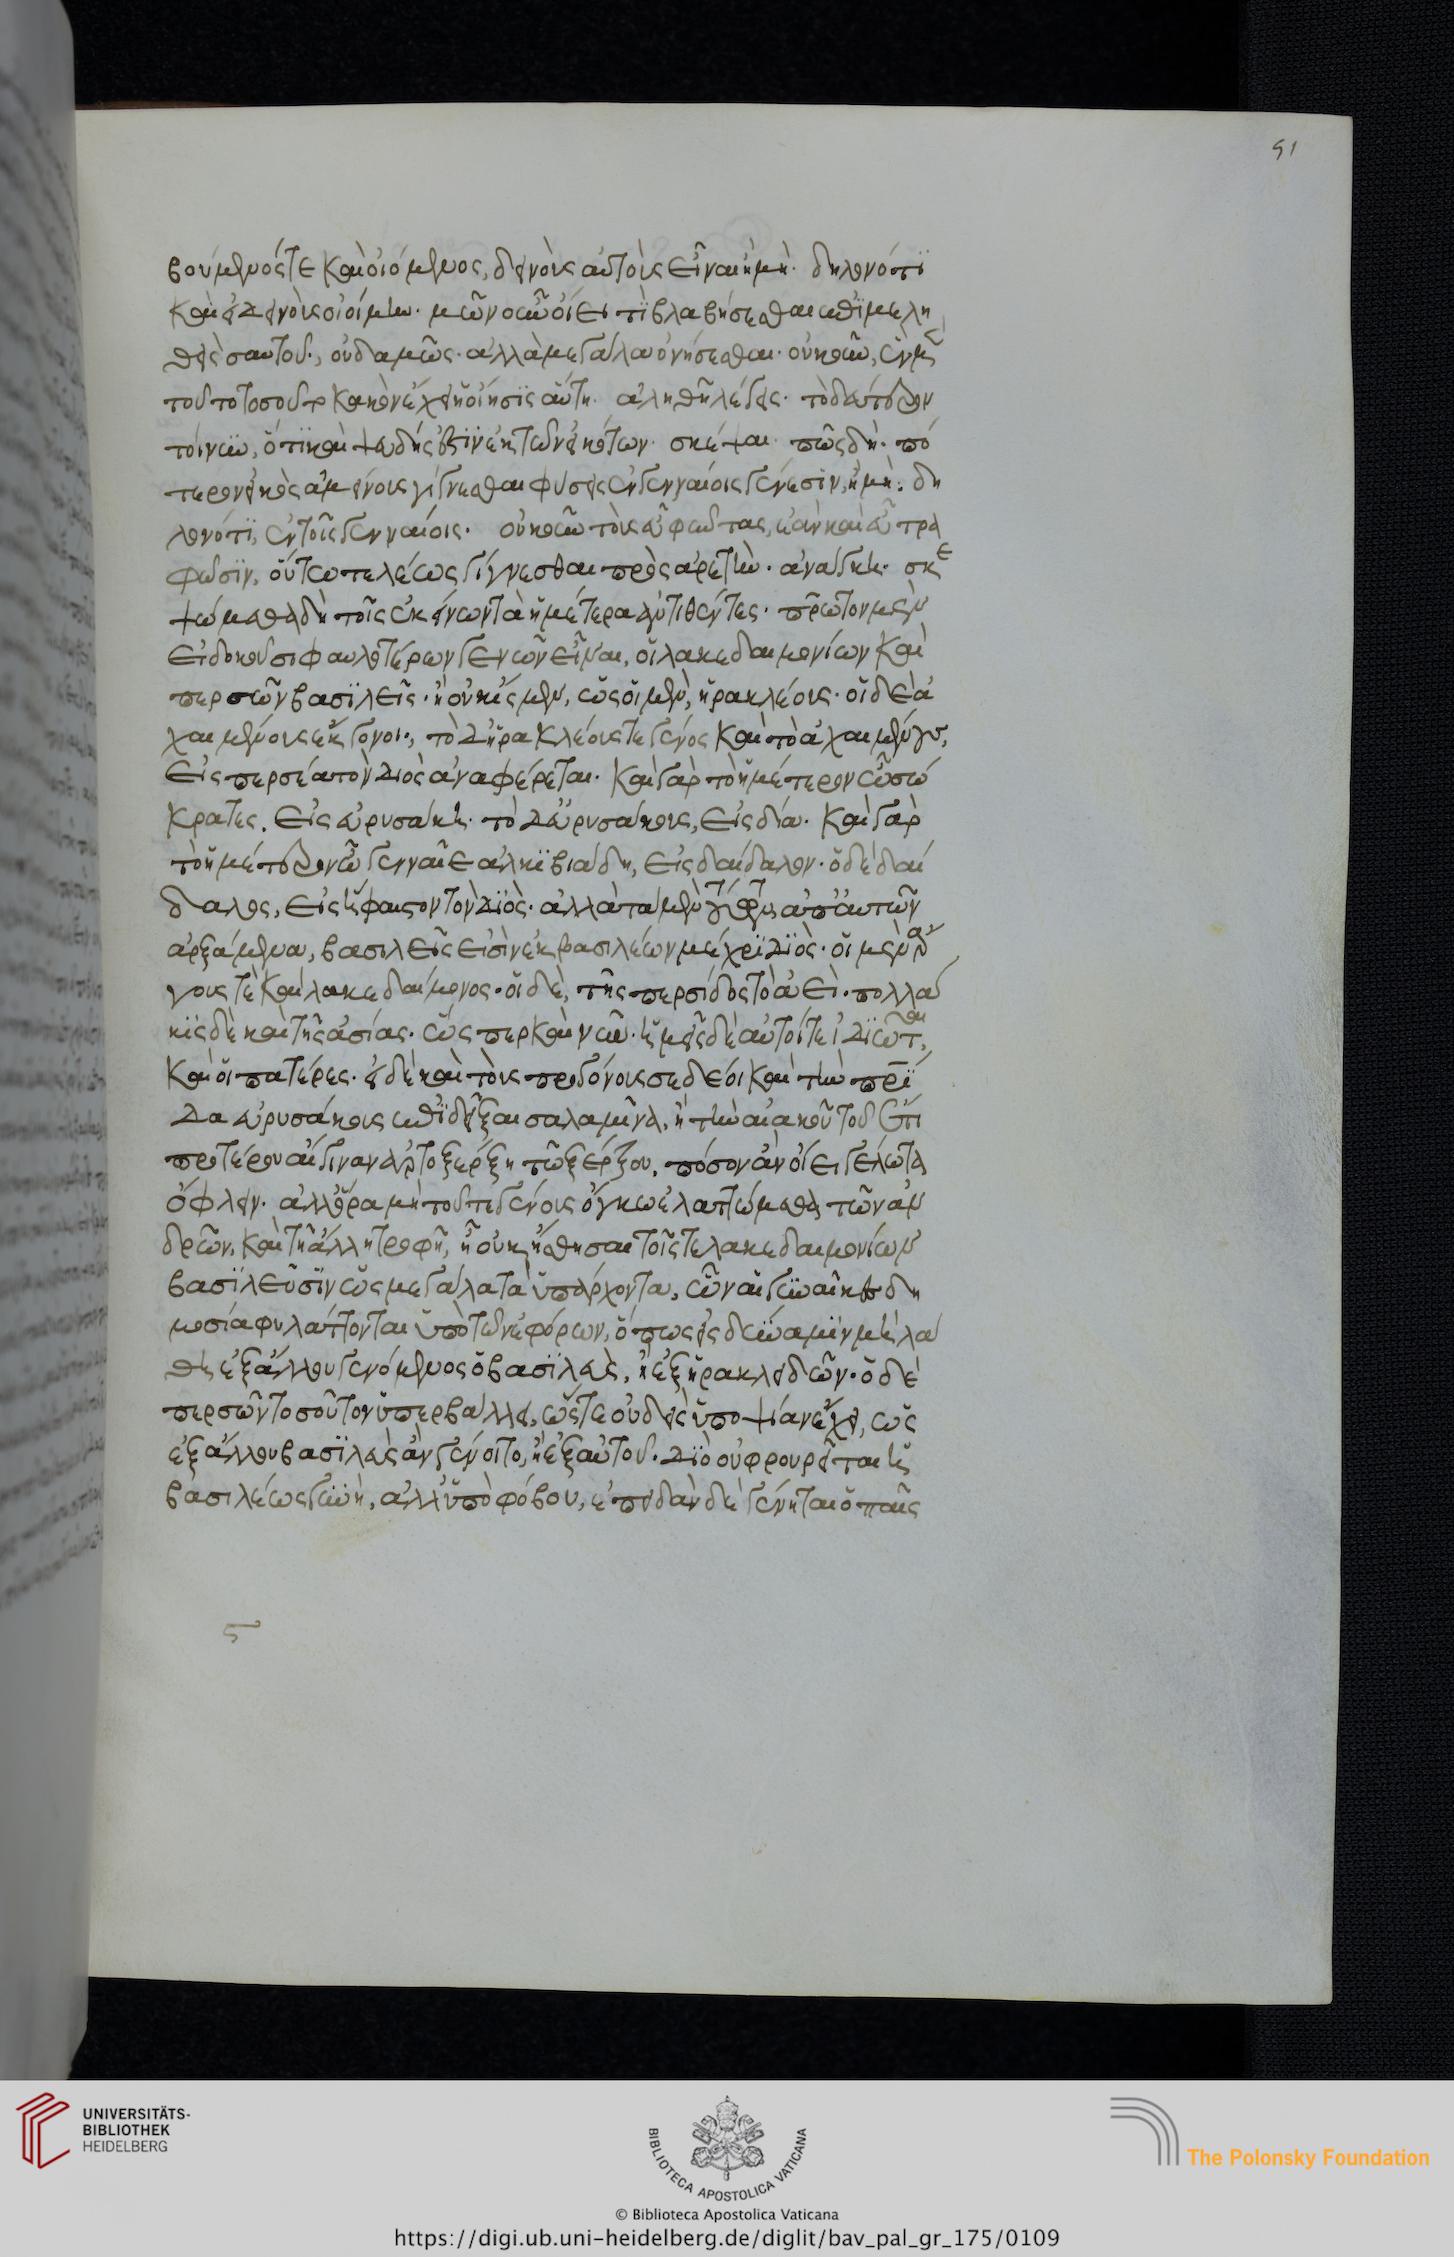 51
βούμενός τε καὶ οἰόμενος, δεινοὺς αὐτοὺς εἶναι ἢ μή· δηλονότι
καὶ εἰ δεινοὺς οἰοίμην· μῶν οὖν οἴει τι βλαβήσεσθαι ἐπιμελη
θεὶς σαυτοῦ; οὐδαμῶς· ἀλλὰ μεγάλα ὀνήσεσθαι· οὐκοῦν, ἓν μὲν
τοῦτο τοσοῦτον κακὸν ἔχει ἡ οἴησις αὕτη· ἀληθῆ λέγεις· τὸ δεύτερον
τοίνυν, ὅτι καὶ ψευδής ἐστιν ἐκ τῶν εἰκότων σκέψαι· πῶς δή· πό
τερον εἰκὸς ἀμείνους γίγνεσθαι φύσεις ἐν γενναίοις γένεσιν, ἢ μή· δη
λονότι, ἐν τοῖς γενναίοις· οὐκοῦν τοὺς εὖ φύντας, ἐὰν καὶ εὖ τρα
φῶσιν, οὕτω τελέως γίγνεσθαι πρὸς ἀρετήν· ἀνάγκη· σκε
ψώμεθα δὴ τοῖς ἐκείνων τὰ ἡμέτερα ἀντιτιθέντες· πρῶτον μὲν
εἰ δοκοῦσι φαυλοτέρων γενῶν εἶναι, οἱ λακεδαιμονίων καὶ
περσῶν βασιλεῖς· ἢ οὐκ ἴσμεν, ὡς οἱ μὲν, ἡρακλέους· οἱ δὲ ἀ
χαιμένους ἔκγονοι, τὸ δ' ἡρακλέους τε γένος καὶ τὸ ἀχαιμένους,
εἰς περσέα τὸν διὸς ἀναφέρεται· καὶ γὰρ τὸ ἡμέτερον ὦ σώ
κρατες, εἰς εὐρυσάκη· τὸ δ' εὐρυσάκους, εἰς δία· καὶ γὰρ
τὸ ἡμέτερον ὦ γενναῖε ἀλκιβιάδη, εἰς δαίδαλον· ὁ δὲ δαί
δαλος, εἰς ἥφαιστον τὸν διὸς· ἀλλὰ τὰ μὲν τούτων ἀπ' αὐτῶν
ἀρξάμενα, βασιλεῖς εἰσὶν ἐκ βασιλέων μέχρι διὸς· οἱ μὲν ἄρ
γους τὲ καὶ λακεδαίμονος· οἱ δὲ, τῆς περσίδος τὸ ἀεὶ· πολλά
κις δὲ καὶ τῆς ἀσίας· ὥσπερ καὶ νῦν· ἡμεῖς δὲ αὐτοί τε ἰδιῶται,
καὶ οἱ πατέρες· εἰ δὲ καὶ τοὺς προγόνους σε δέοι καὶ τὴν πατρί
δα εὐρυσάκους ἐπιδεῖξαι σαλαμῖνα, ἢ τὴν αἰακοῦ τοῦ ἔτι
προτέρου αἴγιναν ἀρτοξέρξη τῶ ξέρξου, πόσον ἂν οἴει γέλωτα
ὀφλεῖν· ἀλλ' ὅρα μὴ τοῦ τε γένους ὄγκω ἐλαττώμεθα τῶν ἀν
δρῶν, καὶ τῆ ἄλλη τροφῆ, ἢ οὐκ ἤσθησαι τοῖς τε λακεδαιμονίων
βασιλεῦσιν ὡς μεγάλα τὰ ὑπάρχοντα, ὧν αἱ γυναῖκες δη
μοσία φυλάττονται ὑπὸ τῶν ἐφόρων, ὅπως εἰς δύναμιν μὴ λά
θη ἐξ ἄλλου γενόμενος ὁ βασιλεὺς, ἢ ἐξ ἡρακλειδῶν· ὁ δὲ
περσῶν τοσοῦτον ὑπερβάλλει, ὥστε οὐδεὶς ὑποψίαν ἔχει, ὡς
ἐξ ἄλλου βασιλεὺς ἂν γένοιτο, ἢ ἐξ αὐτοῦ. διὸ οὐ φρουρεῖται ἡ
βασιλέως γυνὴ, ἀλλ' ἢ ὑπὸ φόβου, ἐπειδὰν δὲ γένηται ὁ παῖς
UNIVERSITÄTS-
BIBLIOTHEK
HEIDELBERG
BIBLIOTECA APOSTOLICA VATICANA
© Biblioteca Apostolica Vaticana
The Polonsky Foundation
https://digi.ub.uni-heidelberg.de/diglit/bav_pal_gr_175/0109